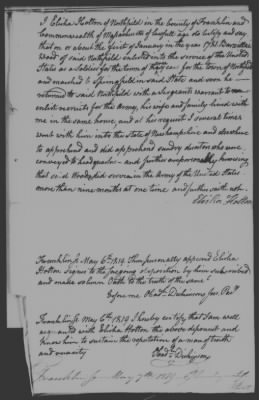 I Elisha Holton of Northfield in the County of Franklin and
Commonwealth of Massachusetts of lawful age do testify and say
that on or about the first of January in the year 1781
Wood of said Northfield enlisted into the service of the United
States as a Soldier for the term of for the town of Northfield
and marched to Springfield in said State and soon he
returned to said Northfield with a Sergeants warrant to
enlist recruits for the Army, his wife and family lived with
me in the same house, and at his request I several times
went with him into the State of Newhampshire and elsewhere
to apprehend and did apprehend sundry deserters who were
conveyed to headquarters - and further knowing
that said Wood did serve in the Army of the United States
more than nine months at one time and further saith not.
Elisha Holton
Franklin Ss May 6th 1819. Then personally appeared Elisha
Holton Signer to the foregoing deposition by him subscribed
and made solemn Oath to the truth of the same
Before me Obadh Dickinson Jus Pac
Franklin Ss May 6th 1819 I hereby certify that I am well
acquainted with Elisha Holton the above deponent and
know him to sustain the reputation of a man of truth
and veracity
Obadh Dickinson
Franklin Ss May 7th 1819